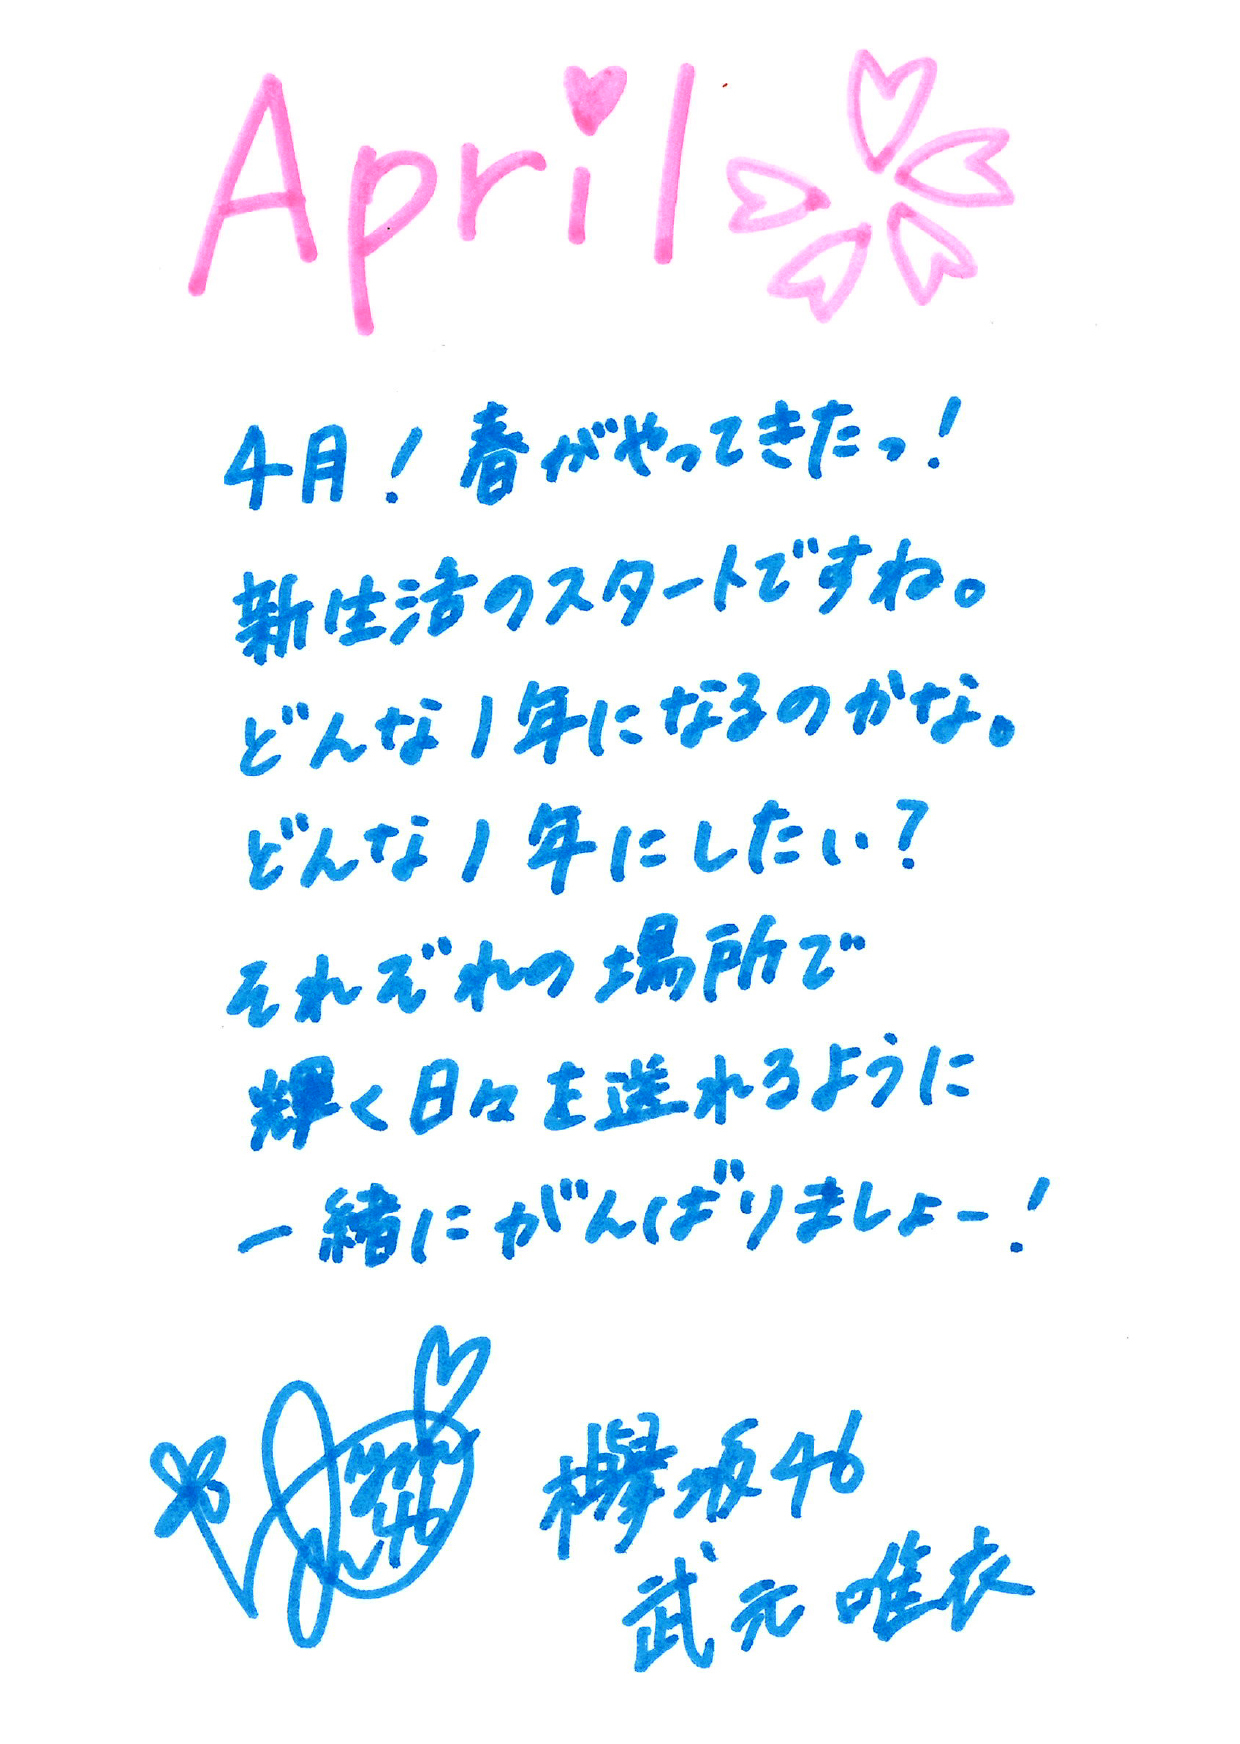 April
4月！春がやってきたっ！
新生活のスタートですね。
どんな1年になるのかな。
どんな1年にしたい？
それぞれの場所で
輝く日々を送れるように
一緒にがんばりましょー！
欅坂46
武元唯衣